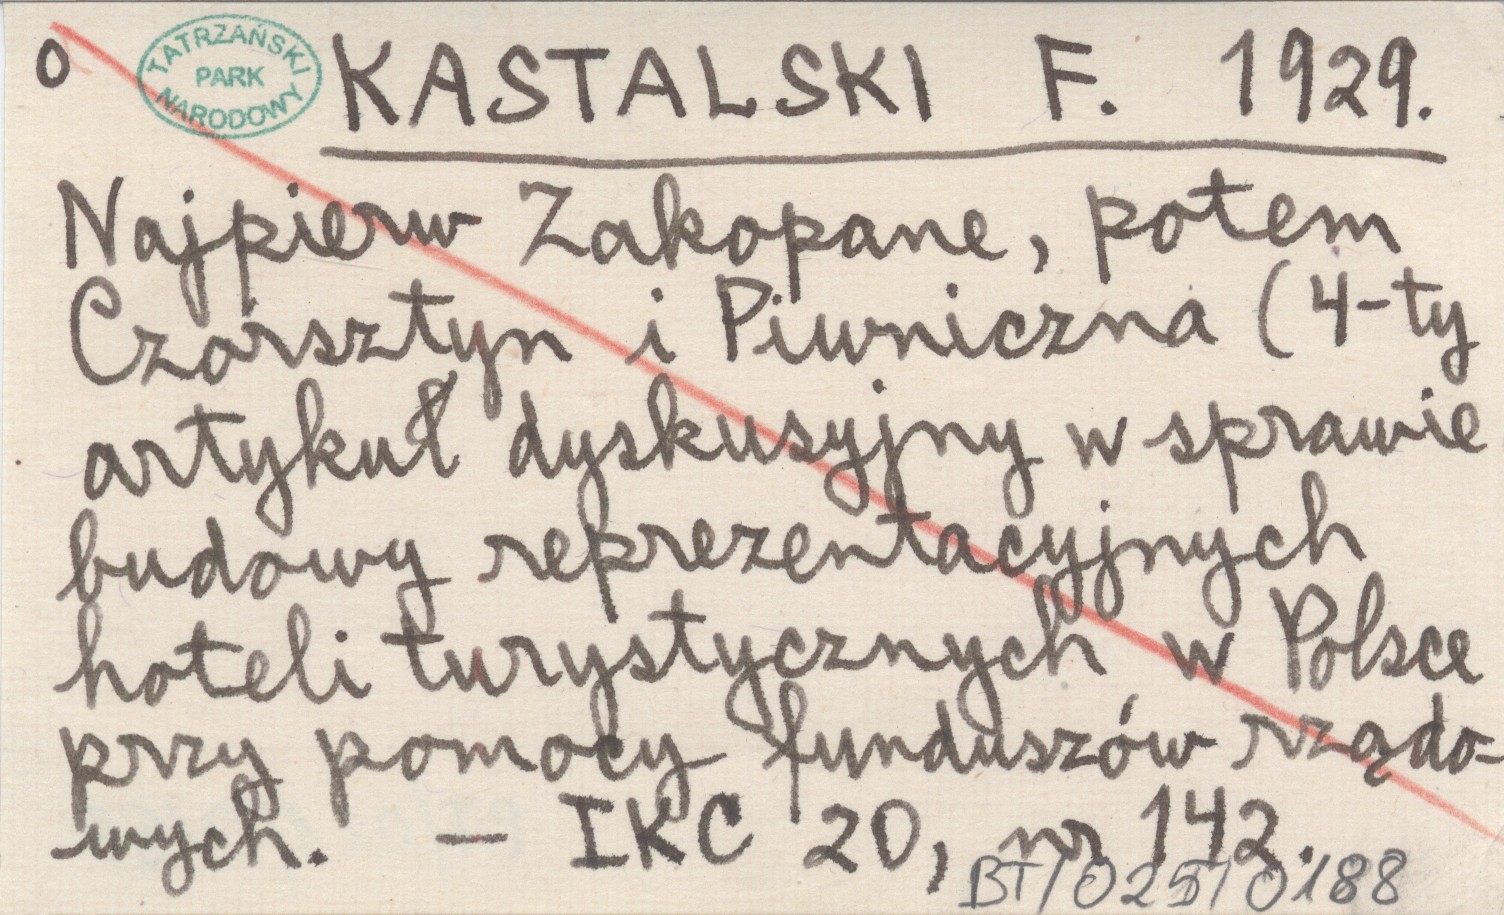 o TATRZAŃSKI PARK NARODOWY KASTALSKI F. 1929.
Najpierw Zakopane, potem
Czorsztyn i Piwniczna (4-ty
artykuł dyskusyjny w sprawie
budowy reprezentacyjnych
hoteli turystycznych w Polsce
przy pomocy funduszów rządo-
wych. — IKC 20, nr 142.
BT/025/0188